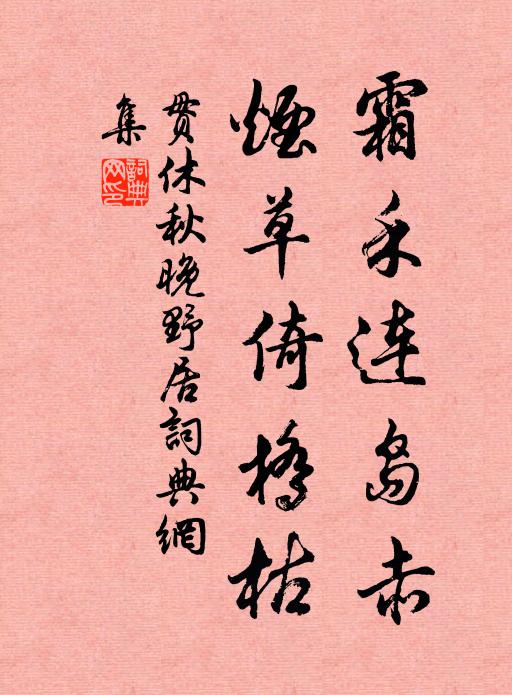 霜禾连岛赤
烟草倚桥枯
贯休秋晚野居词典网
集
词典
网印